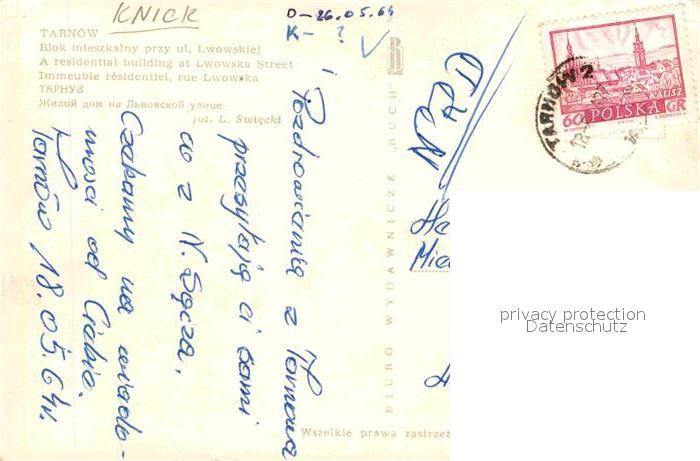 KNICK
D-26.05.64
K- ?
TARNÓW
Blok mieszkalny przy ul. Lwowskiej
A residential building at Lwowska Street
Immeuble résidentiel, rue Lwowska
ТАРНУВ
Жилой дом на Львовской улице
fot. L. Święcki
i Pozdrowienia z Tarnowa
przesyłają ci sami
co z N. Sącza.
Czekamy na wiado-
mości od Ciebie.
Tarnów 18.05.64r.
BIURO WYDAWNICZE „RUCH"
Wszelkie prawa zastrzeż
TARNÓW 2
KALISZ
60 POLSKA GR
privacy protection
Datenschutz